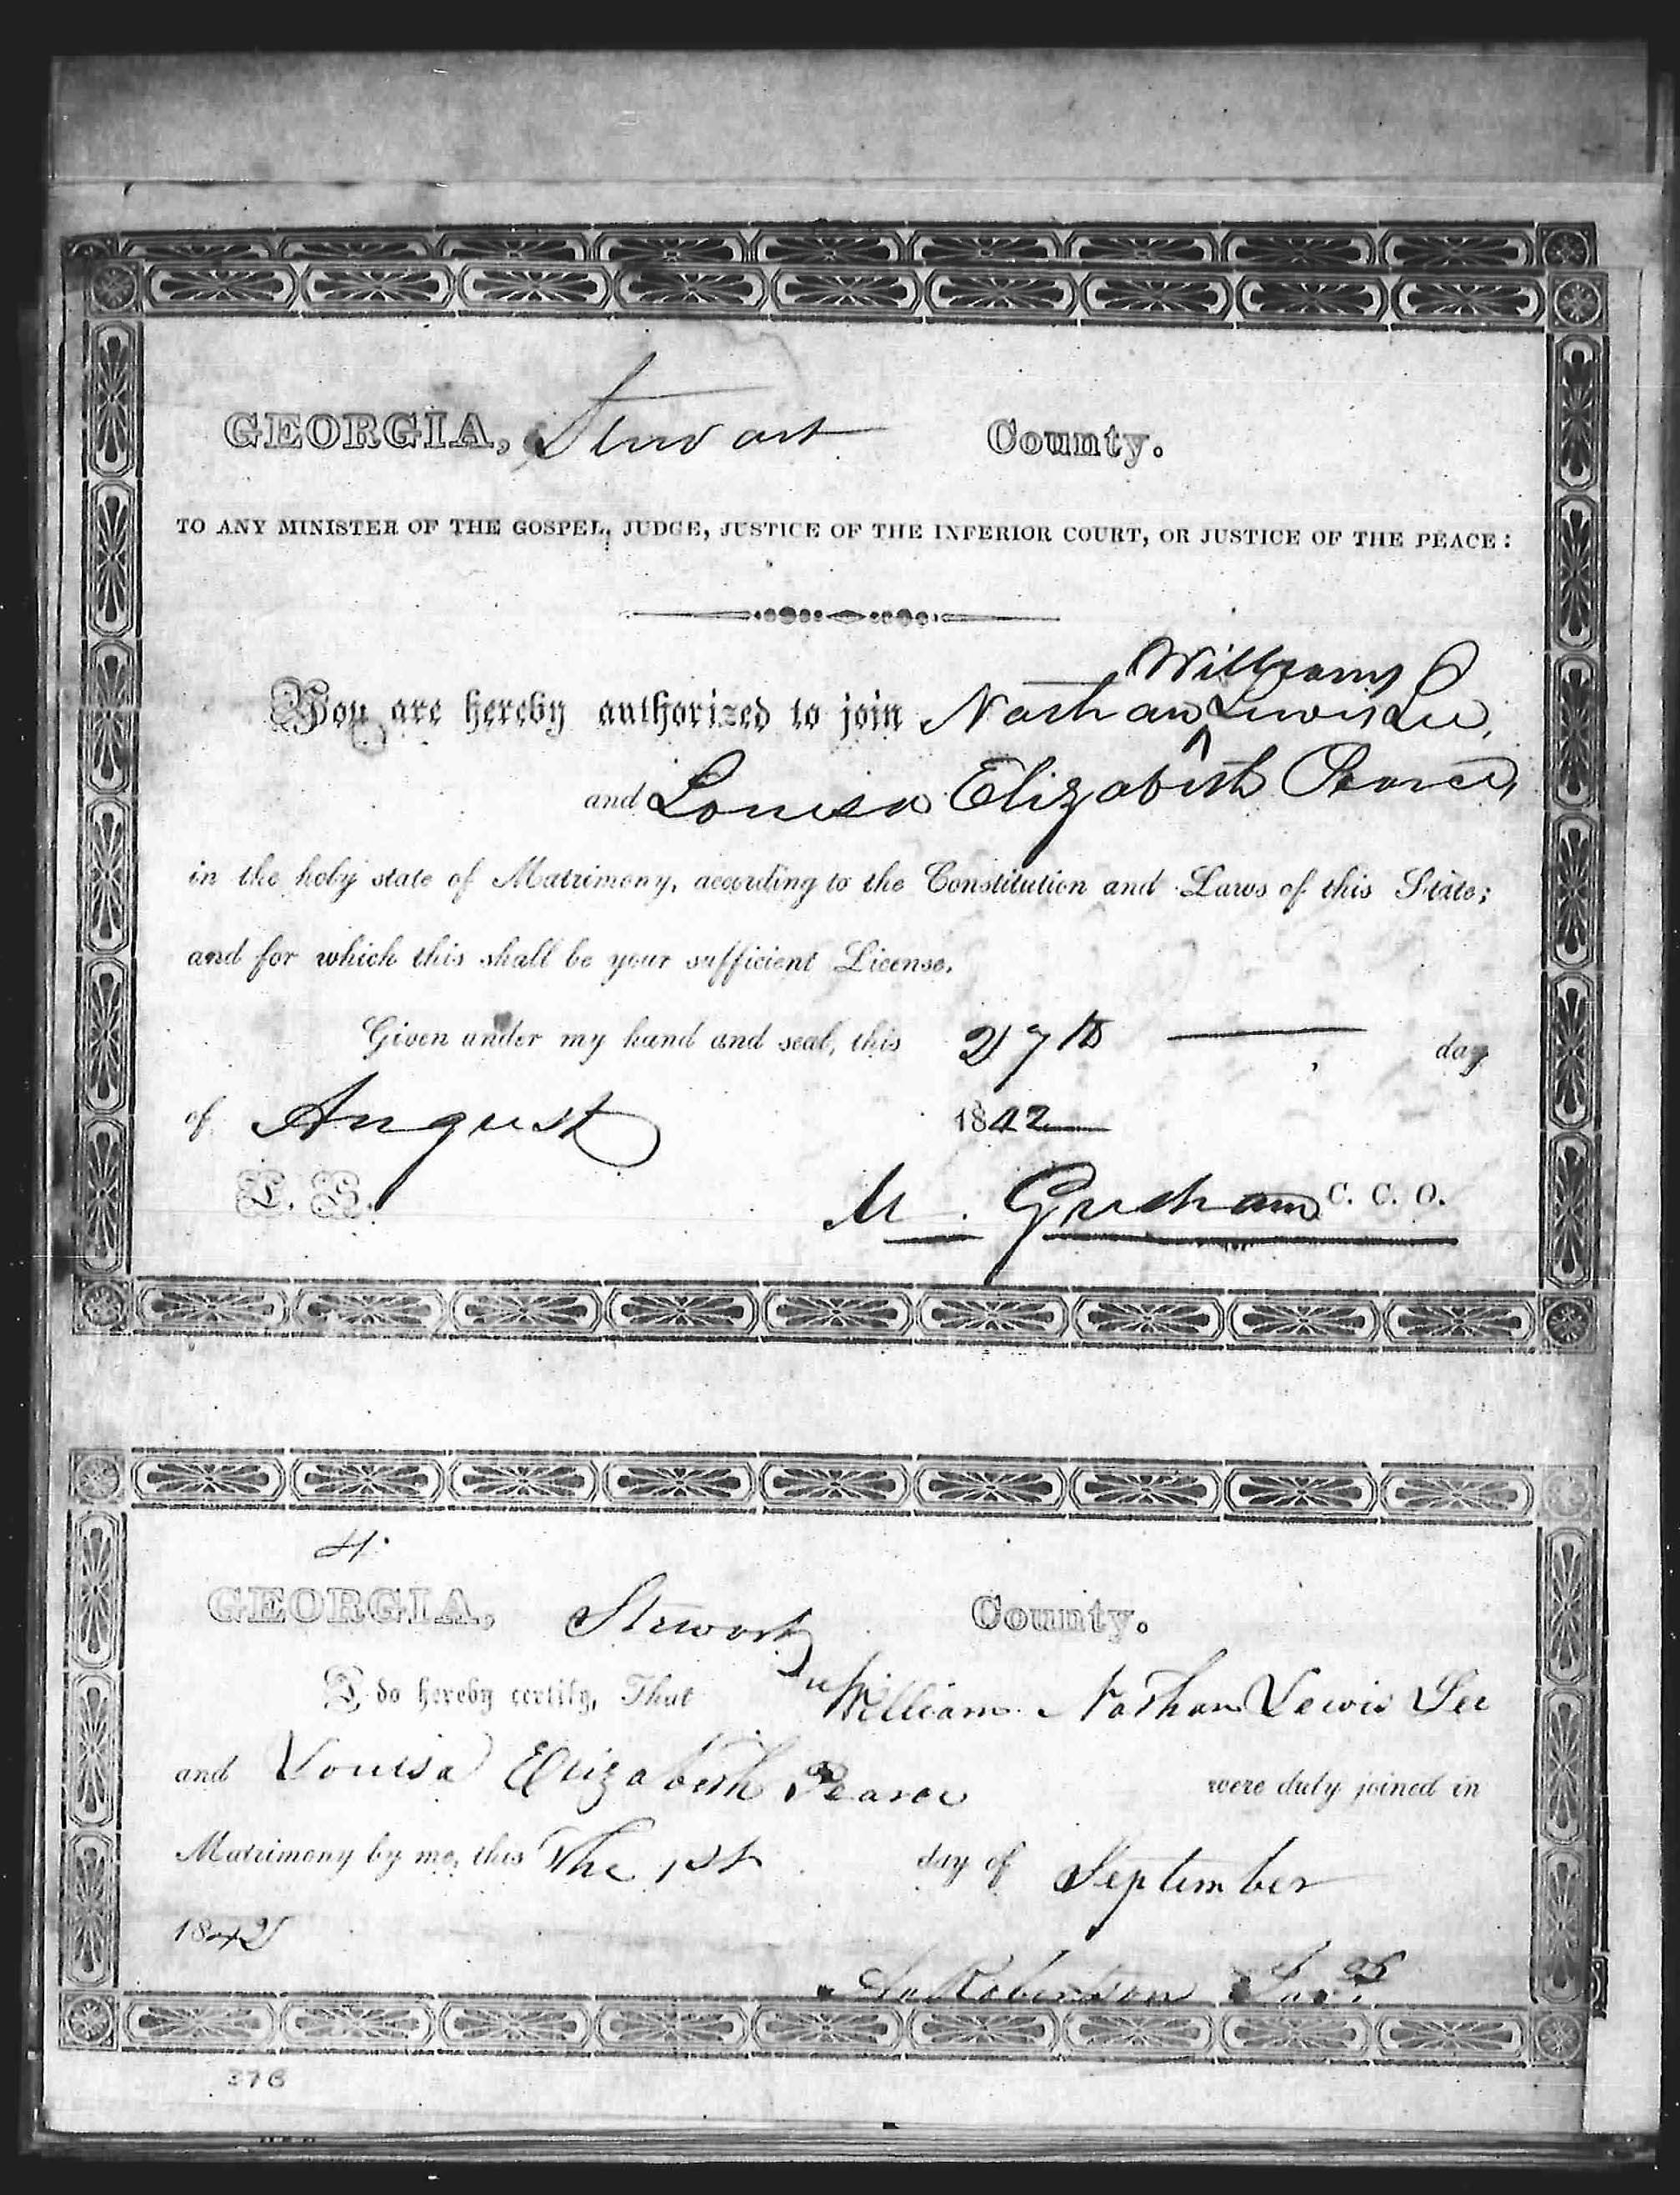 GEORGIA, Stewart County.
TO ANY MINISTER OF THE GOSPEL, JUDGE, JUSTICE OF THE INFERIOR COURT, OR JUSTICE OF THE PEACE:
Williams
You are hereby authorized to join Nathan ^ Lewis Lee,
and Louisa Elizabeth Pearce,
in the holy state of Matrimony, according to the Constitution and Laws of this State;
and for which this shall be your sufficient License.
Given under my hand and seal, this 27th day
of August 1842
L. S. M. Gresham C. C. O.
GEORGIA, Stewart County.
I do hereby certify, That William Nathan Lewis Lee
and Louisa Elizabeth Pearce were duly joined in
Matrimony by me, this The 1st day of September
1842
Robertson
376